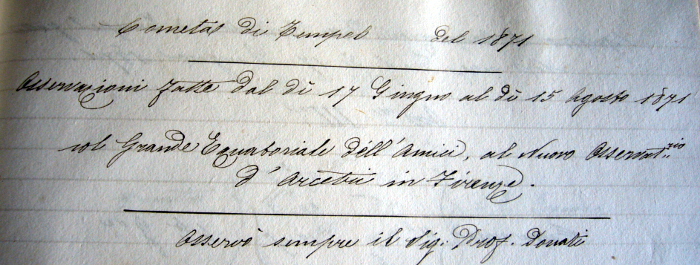 Cometa di Tempel del 1871
Osservazioni fatte dal dì 17 Giugno al dì 15 Agosto 1871
col Grande Equatoriale dell'Amici, al Nuovo Osservat.rio
d'Arcetri in Firenze.
Osservò sempre il Sig. Prof. Donati